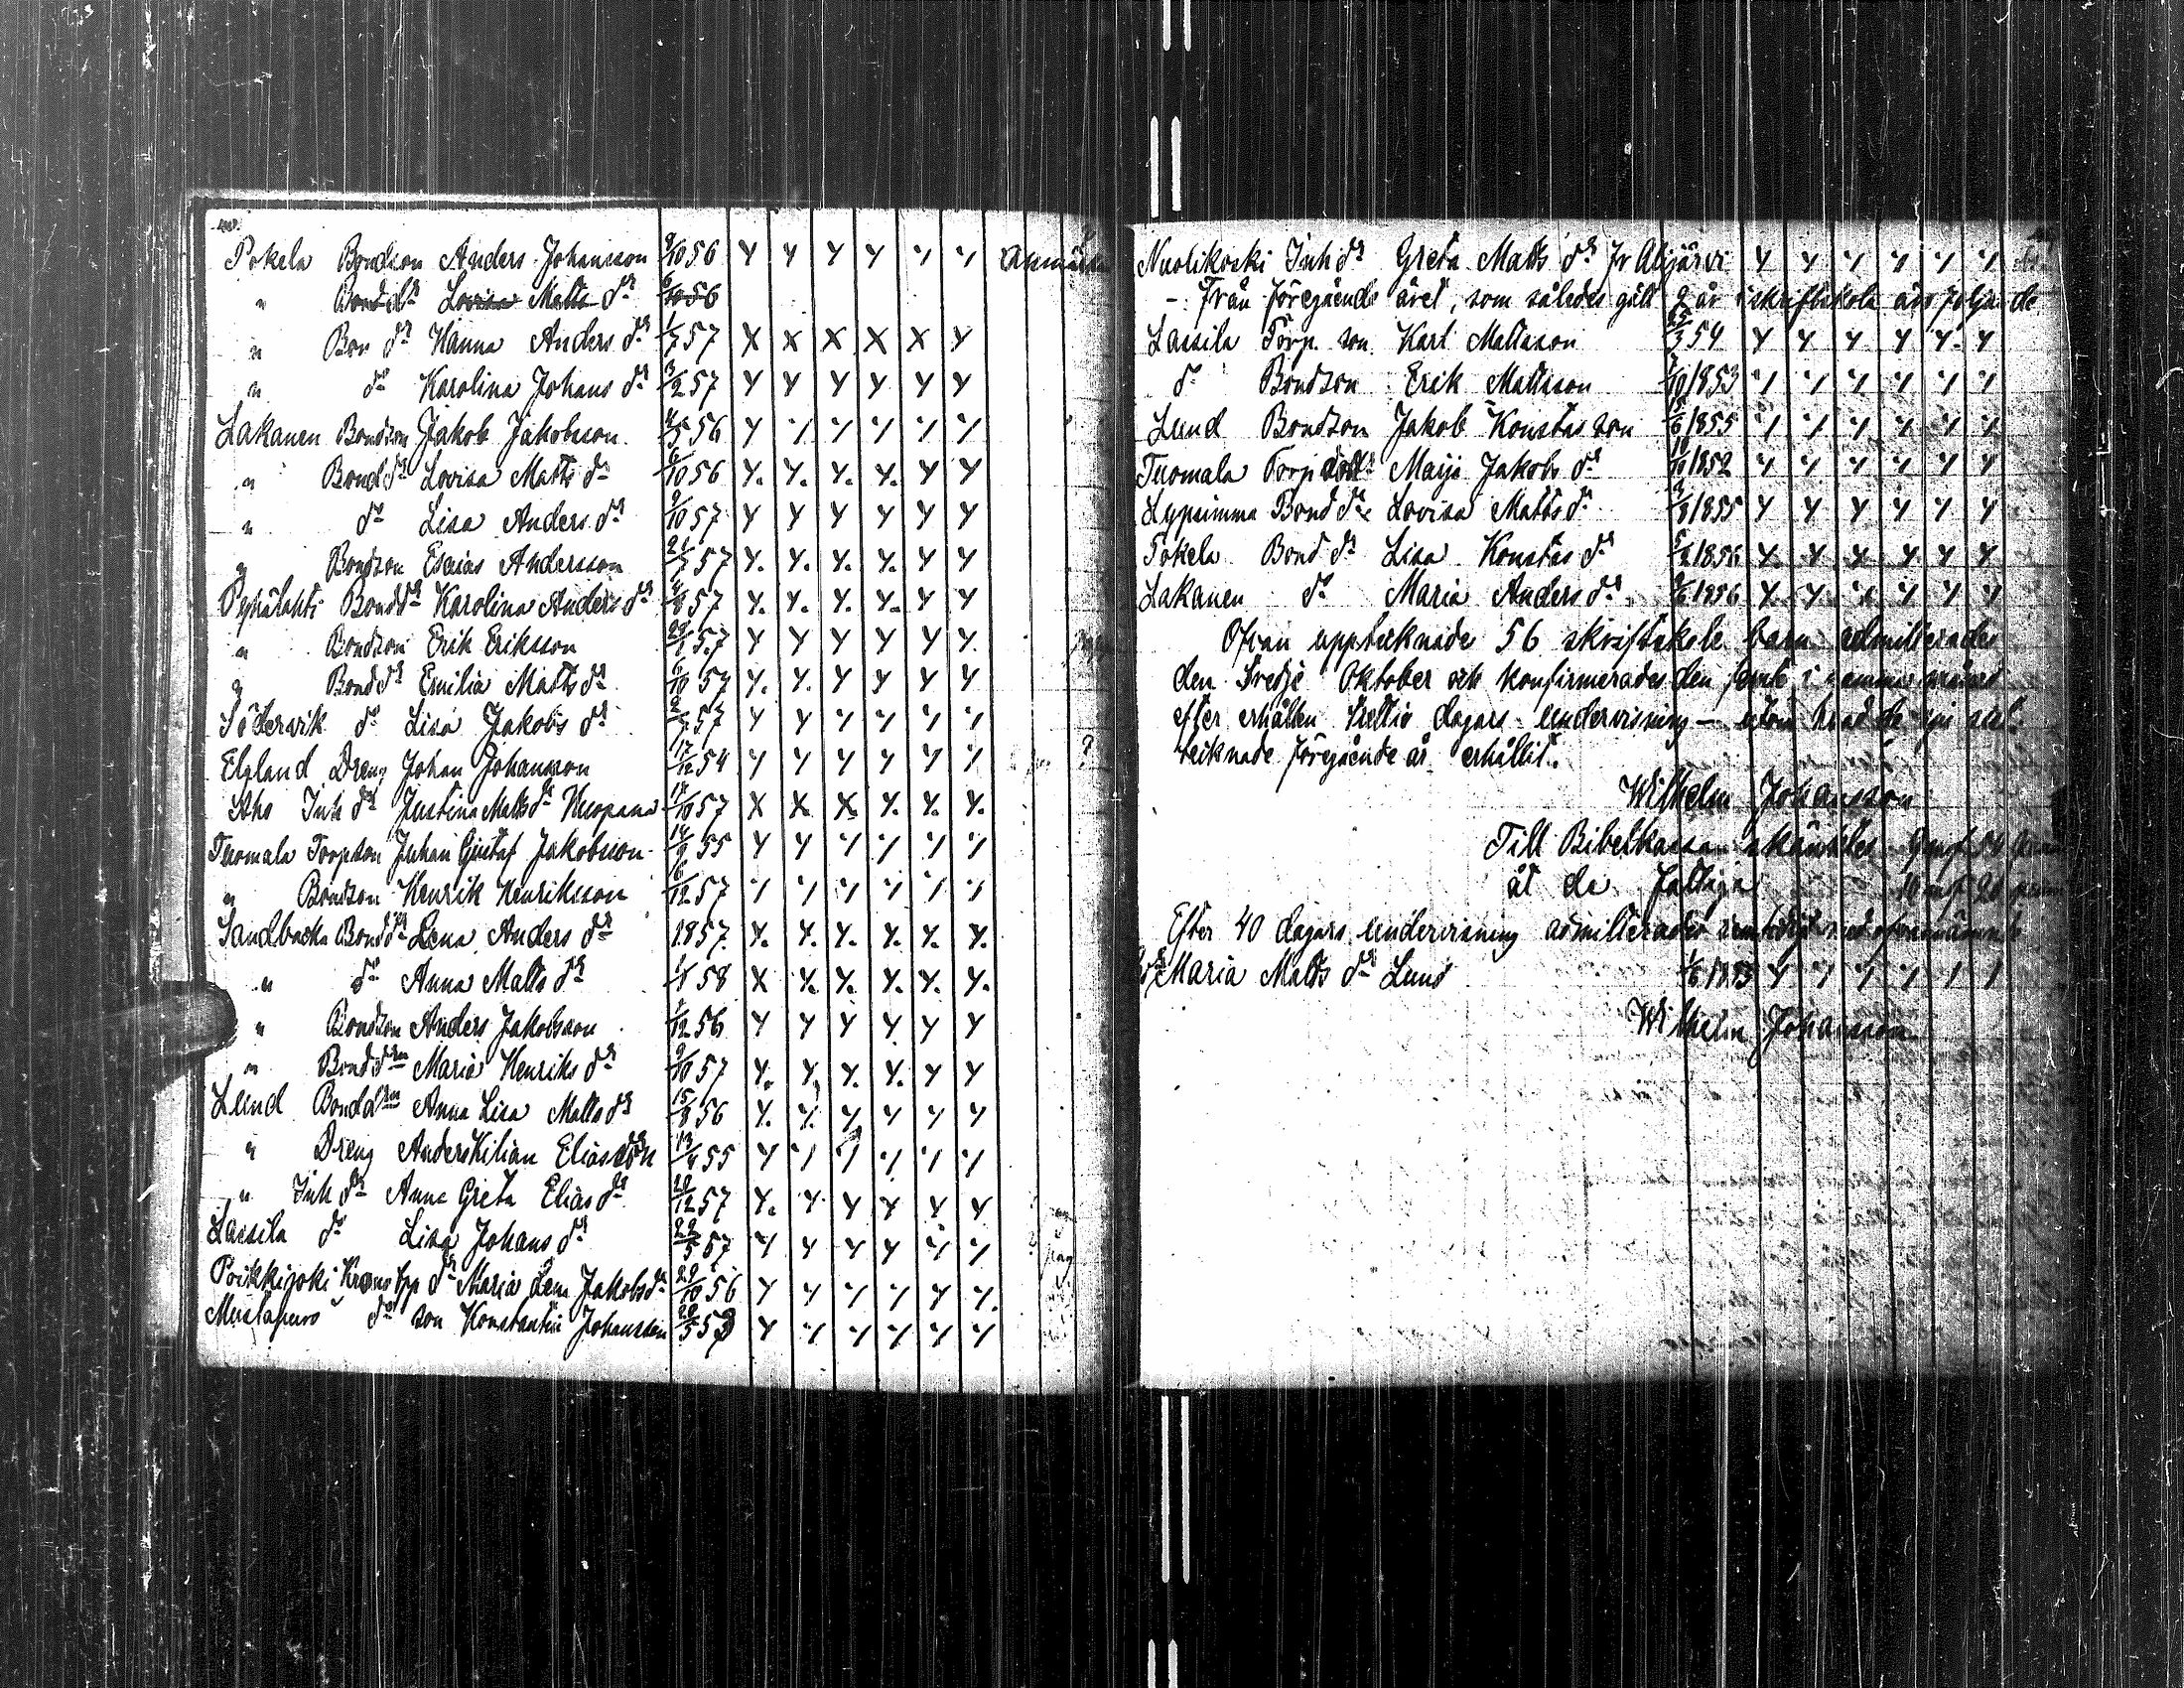 Pokela Bondson Anders Johansson 9/10 56 Anmärkn
" Bond dr Lovisa Matts dr 6/10 56
" Bon dr Hanna Anders dr 1/7 57
" do Karolina Johans dr 3/2 57
Lakanen Bondson Jakob Jakobsson 4/5 56
" Bond dr Lovisa Matts dr 6/10 56
" do Lisa Anders dr 9/10 57
" Bondson Esaias Andersson 21/7 57
Bond dr Karolina Anders dr 57
" Bondson Erik Eriksson 57
" Bond dr Emilia Matts dr 6/10 57
Södervik do Lisa Jakobs dr 57
Elgland Dreng Johan Johansson 17/12 54
Aho Inh dr Justina Matts dr 17/10 57
Tuomala Torpson Johan Gustaf Jakobsson 14/9 55
" Bondson Henrik Henriksson 6/12 57
Sandbacka Bond dr Lena Anders dr 1857
" do Anna Matts dr 58
" Bondson Anders Jakobsson 12 56
" Bond drn Maria Henriks dr 9/10 57
Lund Bond drn Anna Lisa Matts dr 15/8 56
" Dreng Anders Kilian Eliasson 13/4 55
" Inh dr Anna Greta Elias dr 20/12 57
Lassila do Lisa Johans dr 22/5 57
Poikkijoki Krons tpp dr Maria Lena Jakobs dr 29/10 56
Mustapuro do son Konstantin Johansson 20/5 53
Nuolikoski Inh dr Greta Matts dr fr Alajärvi
- Från föregående året, som således gått 2 år i skriftskola äro följande
Lassila Torp. son Karl Mattsson 25/3 54
do Bondson Erik Mattsson 10 1853
Lund Bondson Jakob Konstas son 15/6 1855
Tuomala Torp dott Maija Jakobs dr 18/10 1852
Lypsimma Bond dr Lovisa Matts dr 8 1855
Pokela Bond dr Lisa Konstas dr 5/2 1856
Lakanen do Maria Anders dr 1856
Ofvan upptecknade 56 skriftskole barn admitterades
den tredje Oktober och konfirmerades den femte i samma månad
efter erhållen trettio dagars undervisning — utom hvad de nu
tecknade föregående år erhållit.
Wilhelm Johansson
Till Bibelkassan skänktes 9 mf 54
åt de fattiga 10 mf 20
Efter 40 dagars undervisning admitterades samtidigt med ofvannämnde
Maria Matts dr Lund 1/6 1853
Wilhelm Johansson